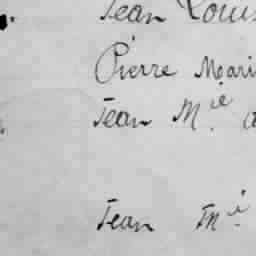 Jean Louis
Pierre Mari
Jean M.ie
Jean M.ie